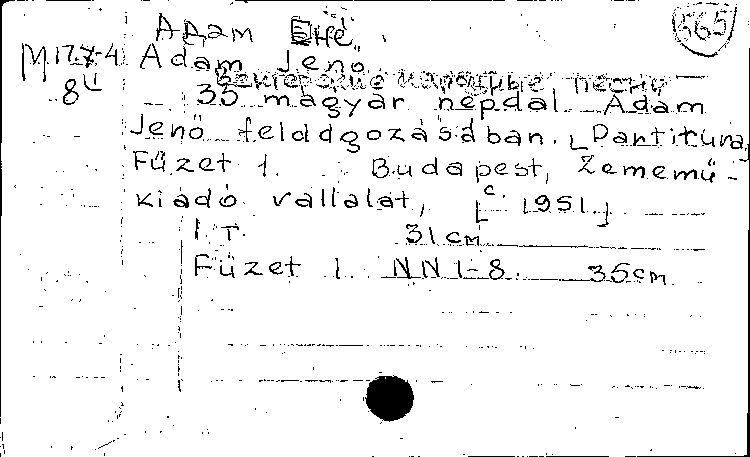 Адам Енё
565
M 17.X-4
Adam Jenö
Венгерские народные песни
8
35 magyar nepdal Adam
Jenö feldolgozásában. [Partitura,
Füzet 1. Budapest, Zenemü-
kiadó vallalat, [c. 1951.]
1 T. 31 cm
Füzet 1. NN 1-8. 35 cm